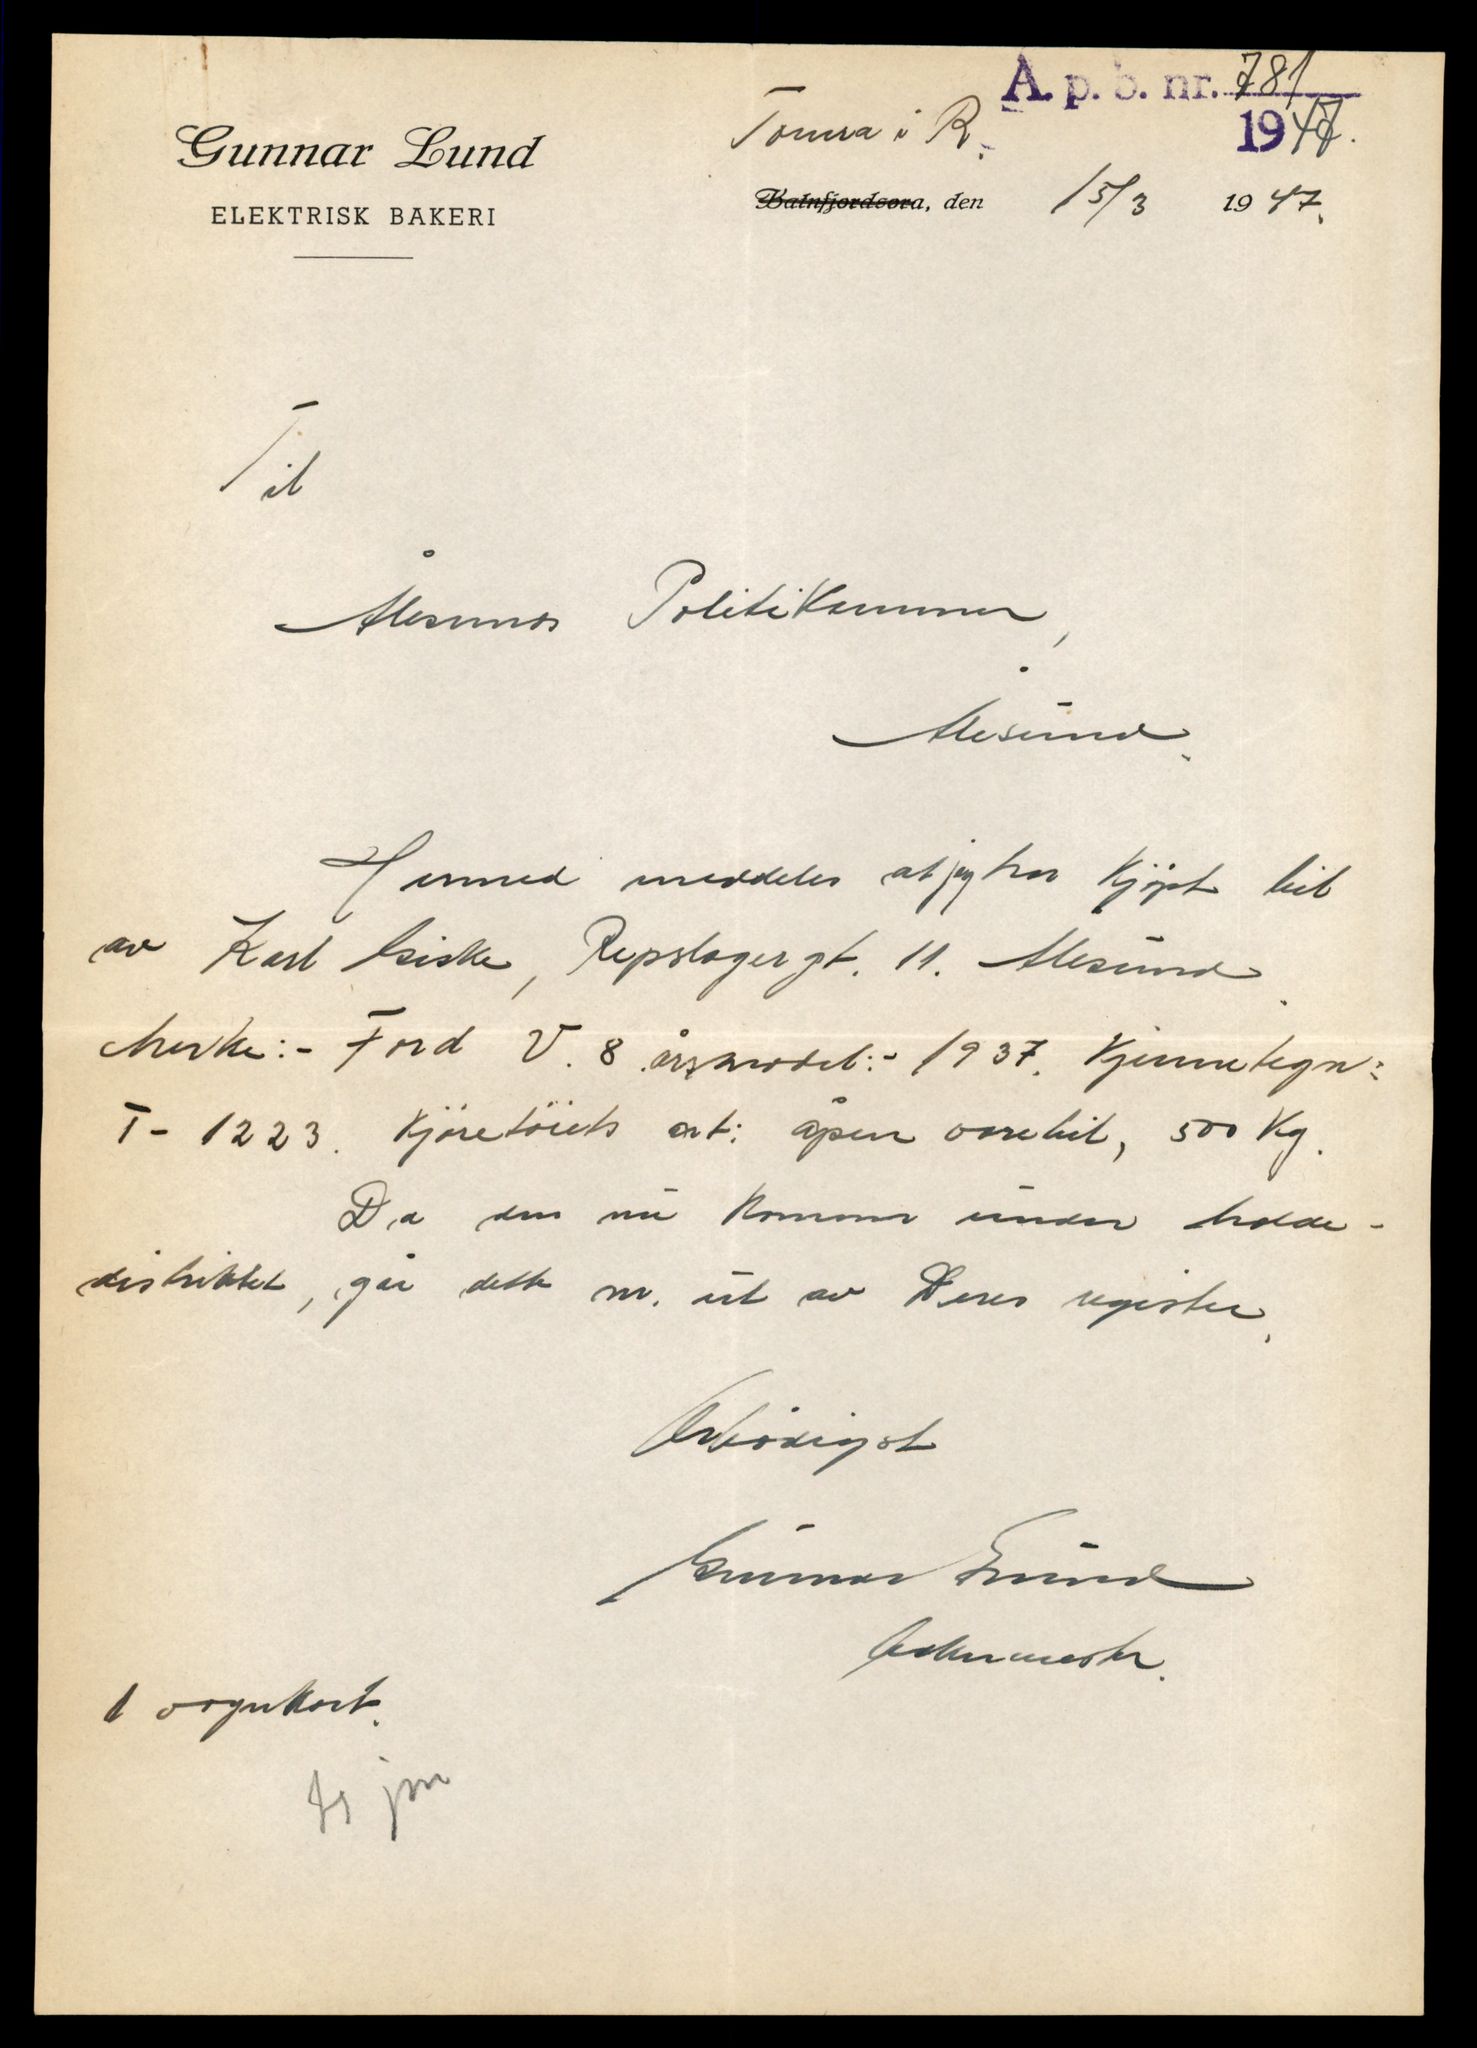 A. p. b. nr. 781
1947.
Gunnar Lund
ELEKTRISK BAKERI
Tomra i R.
Batnfjordsøra, den 15/3 1947.
Til
Ålesunds Politikammer,
Ålesund.
Hermed meddeles at jeg har kjøpt bil
av Karl Giske, Repslagergt. 11. Ålesund.
Merke:- Ford V. 8 årsmodel:- 1937. Kjennetegn:
T- 1223. Kjøretøiets art: åpen varebil, 500 Kg.
Da den nu kommer under Molde-
distriktet, går dette nr. ut av Deres register.
Ærbødigst
Gunnar Lund
Bakermester.
1 vognkort.